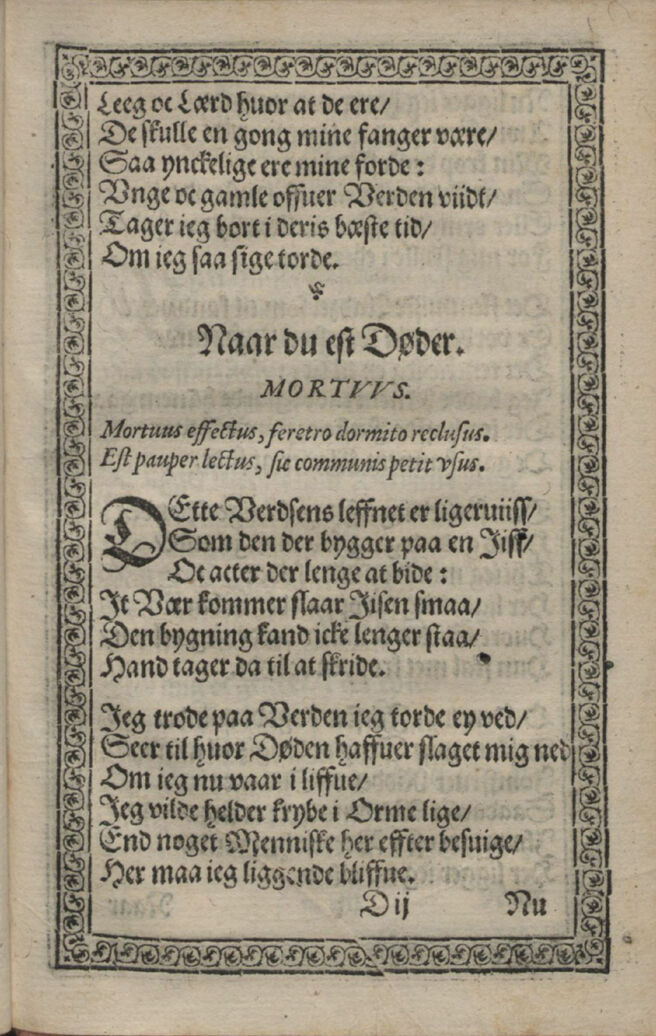 Leeg oc Lærd huor at de ere/
De skulle en gong mine fanger være/
Saa ynckelige ere mine forde:
Vnge oc gamle offuer Verden viidt/
Tager ieg bort i deris bæste tid/
Om ieg saa sige torde.
Naar du est Døder.
MORTVVS.
Mortuus effectus, feretro dormito reclusus.
Est pauper lectus, sic communis petit vsus.
DEtte Verdsens leffnet er ligeruiiss/
Som den der bygger paa en Jiss/
Oc acter der lenge at bide:
It Vær kommer slaar Jisen smaa/
Den bygning kand icke lenger staa/
Hand tager da til at skride.
Jeg trode paa Verden ieg torde ey ved/
Seer til huor Døden haffuer slaget mig ned
Om ieg nu vaar i liffue/
Jeg vilde helder krybe i Orme lige/
End noget Menniske her effter besuige/
Her maa ieg liggende bliffue.
Dij Nu